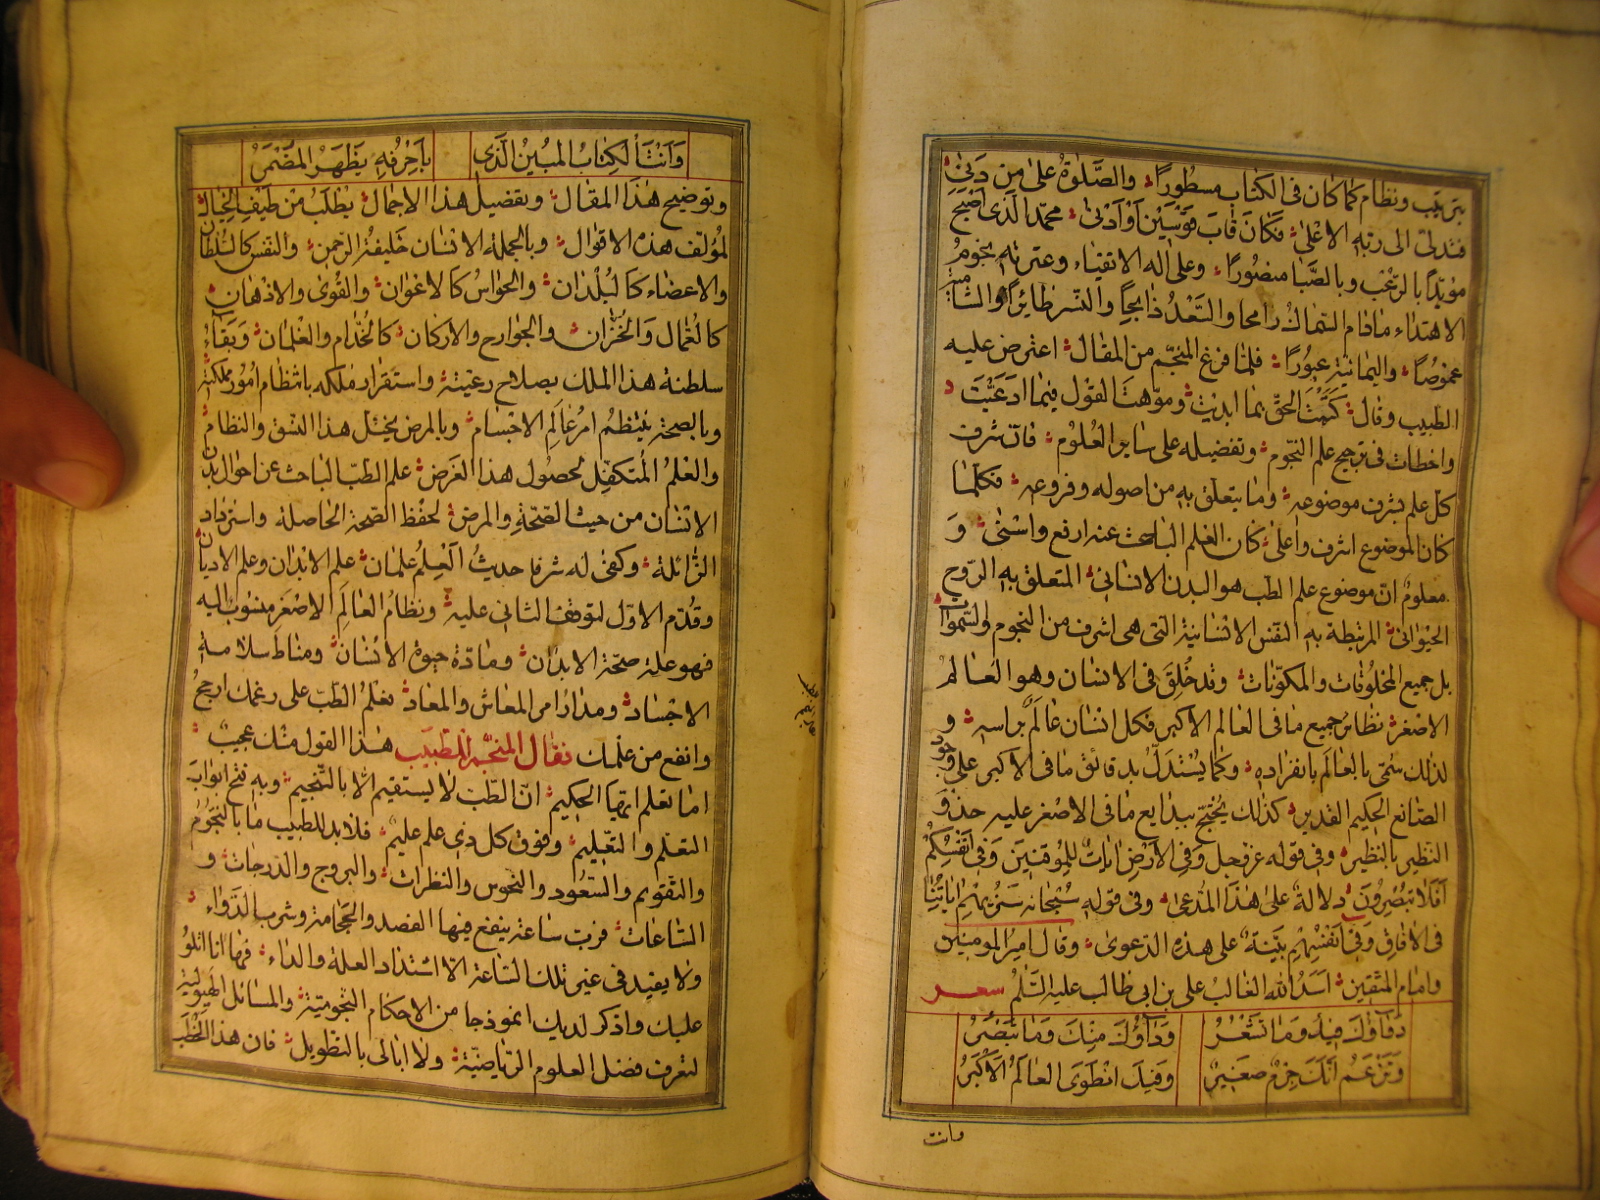 بترتيب ونظام كما كان فى الكتاب مسطورًا والصّلوة على من دَنىٰ
فتدلىّ الى ربّه الاعلىٰ فكان قابَ قوسَين أوأدنىٰ محمّد الّذى اصبح
مؤيّدًا بالرّعب وبالصَّبا منصُورًا وعلى اله الاتقياء وعترته نجوم
الاهتداء مادام السّماك رامحا والسَّعدُ ذابحًا والنّسر طائرًا والشّاميّة
غموصًا واليمانية عبورًا فلمّا فرغ المنجّم من المقال اعترض عليه
الطبيب وقال كتمت الحقّ بما ابديت وموّهت القول فيما ادعيت
واخطات فى ترجيح علم النّجوم وتفضيله على ساير العُلوم فانّ شرف
كل علم بشرف موضوعه وما يتعلق به من اصوله وفروعه فكلّما
كان الموضوع اشرف واعلى كان العلم الباحث عنه ارفع واسنىٰ وَ
معلومٌ انّ موضوع علم الطب هو البدن الانسانى المتعلق به الرّوح
الحيوانى المرتبطة به النفس الانسانية التى هى اشرف من النجوم والسّموات
بل جميع المخلوقات والمكوّنات وقد خُلِقَ فى الانسان وهو العالم
الاصغر نظاير جميع ما فى العالم الاكبر فكل انسان عالَم براسه و
لذلك سمّى بالعالَم بانفراده وكما يُستدلّ بدقائق ما فى الاكبر على وجود
الصّانع الحكيم القدير كذلك يُحتجّ ببدايع ما فى الاصغر عليه حذوَ
النّظير بالنظير وفى قوله عزّوجل وَفِى الأرضِ اياتٌ للمُوقنين وَفى أنفُسِكُم
أفَلا تُبصِرُونَ دلالةٌ على هٰذا المُدّعى وفى قوله سُبحانه سَنُريهِم اياتنا
فى الافاقِ وفى أنفسِهِم بيّنة على هذه الدّعوى وقال امير المومنين
وامام المتّقين اسَدُ الله الغالب على بن ابى طالب عليه السّلم شعر
دَوَاؤُكَ فِيكَ وَمَا تَشْعُرُ وَدَاؤُكَ مِنكَ وَمَا تُبصِرُ
وَتَزْعَمُ أنّكَ جِرْمٌ صَغيرٌ وَفيكَ انطَوَى العالَمُ الأكْبَرُ
وانت
وَأنْتَ الكِتابُ المُبينُ الّذى بأحرُفِهِ يَظهَرُ المُضْمَرُ
وتوضيح هٰذا المقال وتفضيل هذا الاجمال يطلبُ من طيف الخيال
لمؤلف هذه الاقوال وبالجملة الانسان خليفة الرّحمن والنّفس كالسُلطان
والاعضاء كالبُلدان والحواسّ كالاعوان والقُوىٰ والاذهان
كالعُمّال والخُزّان والجوارح والاركان كالخُدّام والغلمان وبَقاءُ
سلطنة هذا الملك بصلاح رعيّته واستقرار ملكه بانتظام امُور مملكته
وبالصحة يَنتظمُ امرُ عالَم الاجسام وبالمرض يختل هذا النسق والنظام
والعلمُ المتكفّل لحصُول هذا الغَرض علم الطبّ الباحث عن احوال بدن
الانسان من حيث الصّحّة والمرض لحفظ الصّحة الحاصلة واسترداد
الزّائلة وكفى له شرفا حديثُ العِلمُ علمان علم الابدان وعلم الاديان
وقُدّم الاوّل لتوقف الثانى عليه ونظامُ العالَم الاصغر منسُوبٌ اليه
فهو علة صحّة الابدان ومادّة حيوة الانسان ومناط سلامة
الاجساد ومدار امر المعاش والمعاد فعلم الطّب على رغمك ارجحُ
وانفع من علمك فقال المنجّم للطّبيب هٰذا القول منك عجيبٌ
اما تعلم ايها الحكيم انّ الطّبّ لا يستقيم الّا بالتّنجيم وبه فتح ابواب
التعلم والتعليم وفوق كل ذى علم عليم فلابد للطبيب من معرفة النّجُوم
والتقويم والسّعُود والنّحوس والنظرات والبروج والدّرجات و
السّاعات فربّ ساعة ينفع فيها الفصد والحجامة وشرب الدّواء
ولا يفيد فى غير تلك السّاعة الّا اشتداد العلة والداء فها انا اتلوُ
عليك واذكر لديك انموذجا من الاحكام النّجوميّة والمسائل الهيوية
لتعرف فضل العلوم الرياضيّة ولا ابالى بالتطويل فان هذا الخطب